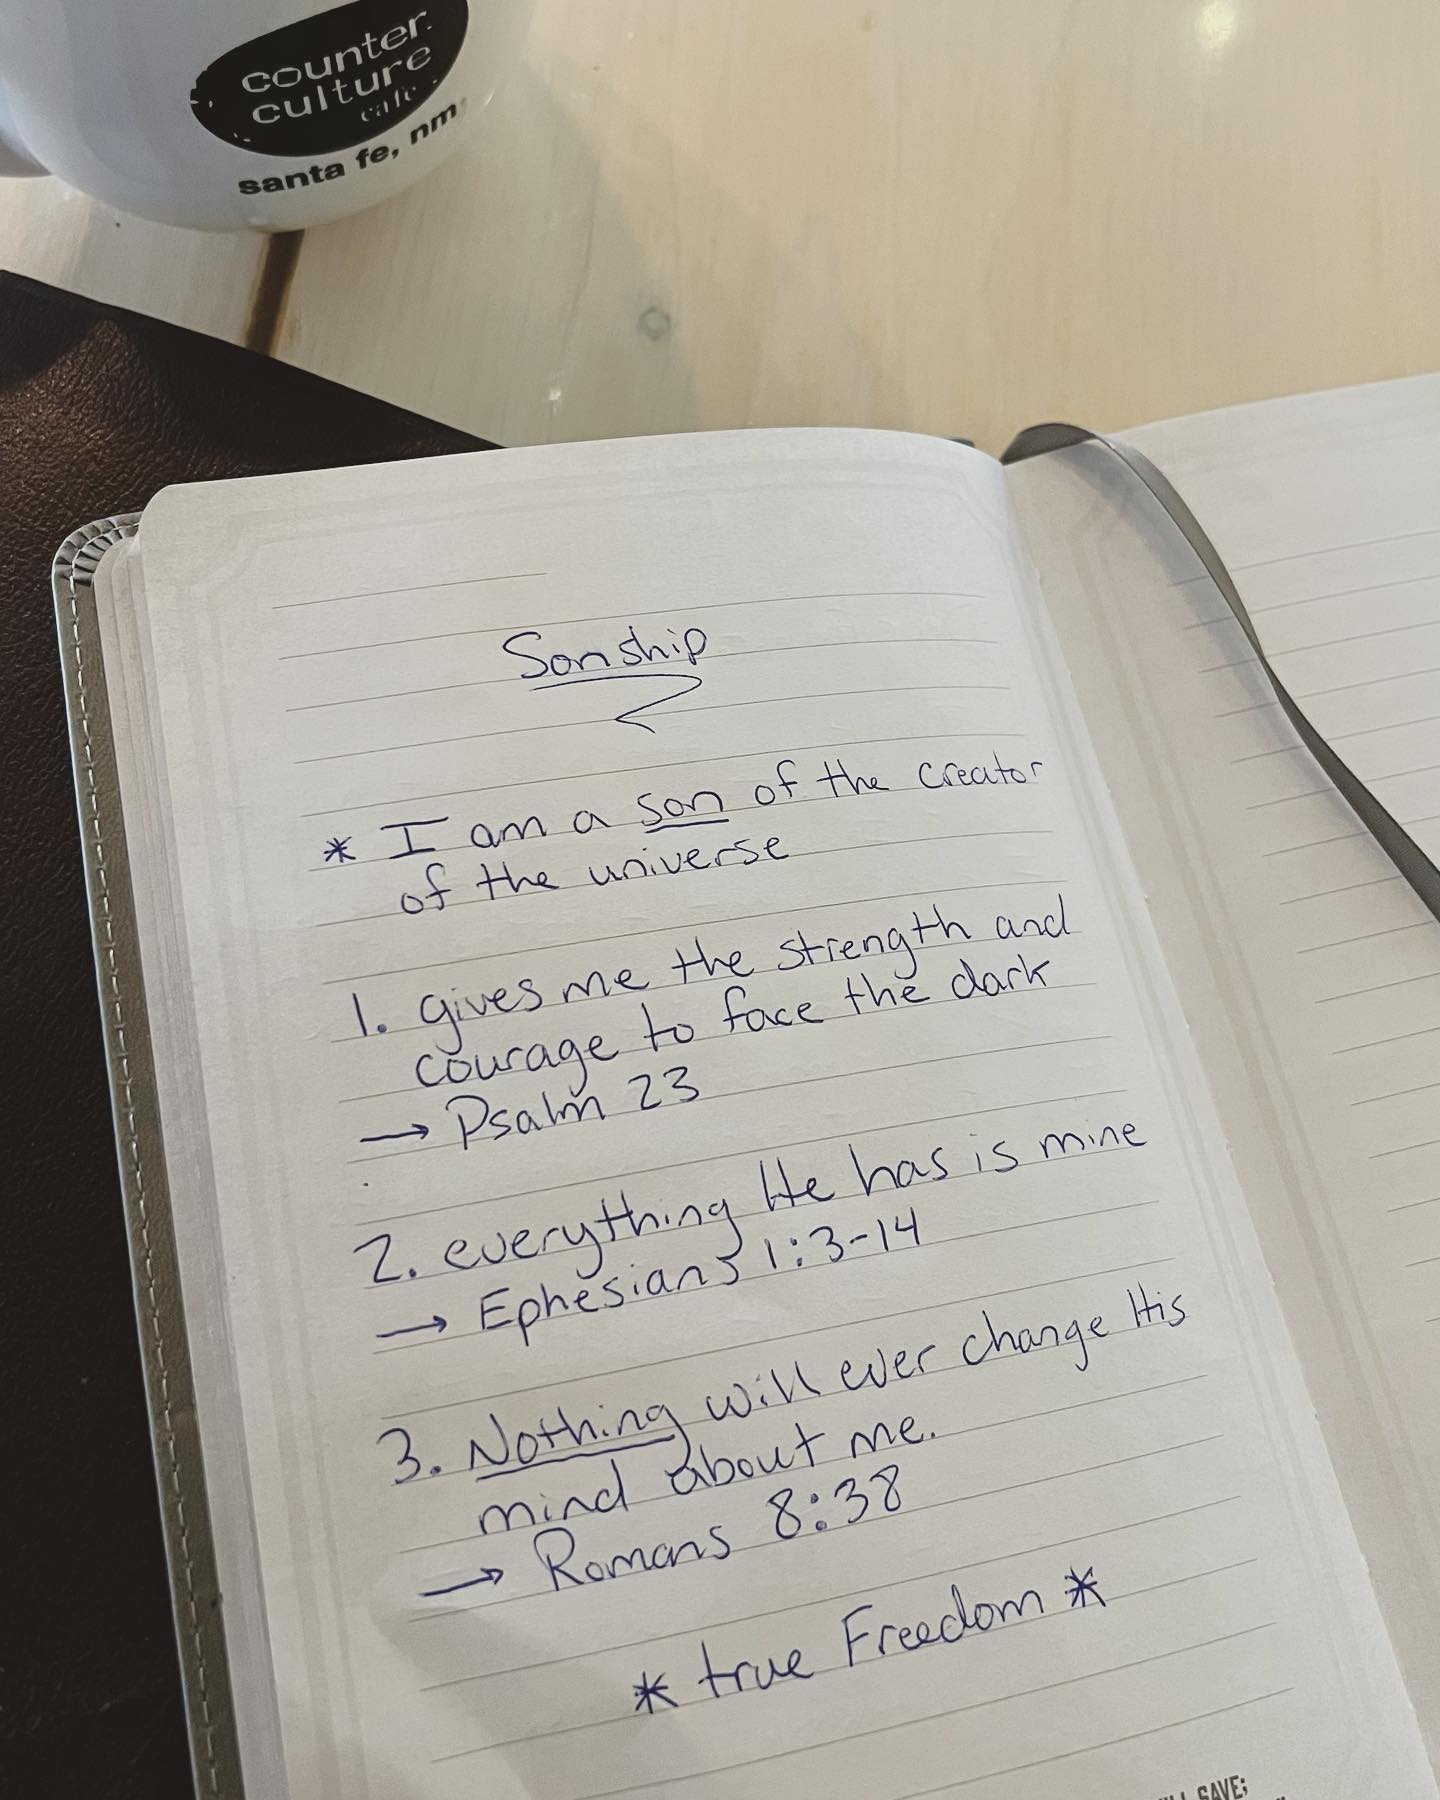 counter.
culture
cafe
santa fe, nm
Sonship
* I am a son of the creator
of the universe
1. gives me the strength and
courage to face the dark
→ Psalm 23
2. everything He has is mine
→ Ephesians 1:3-14
3. Nothing will ever change His
mind about me.
→ Romans 8:38
* true Freedom *
SAVE;